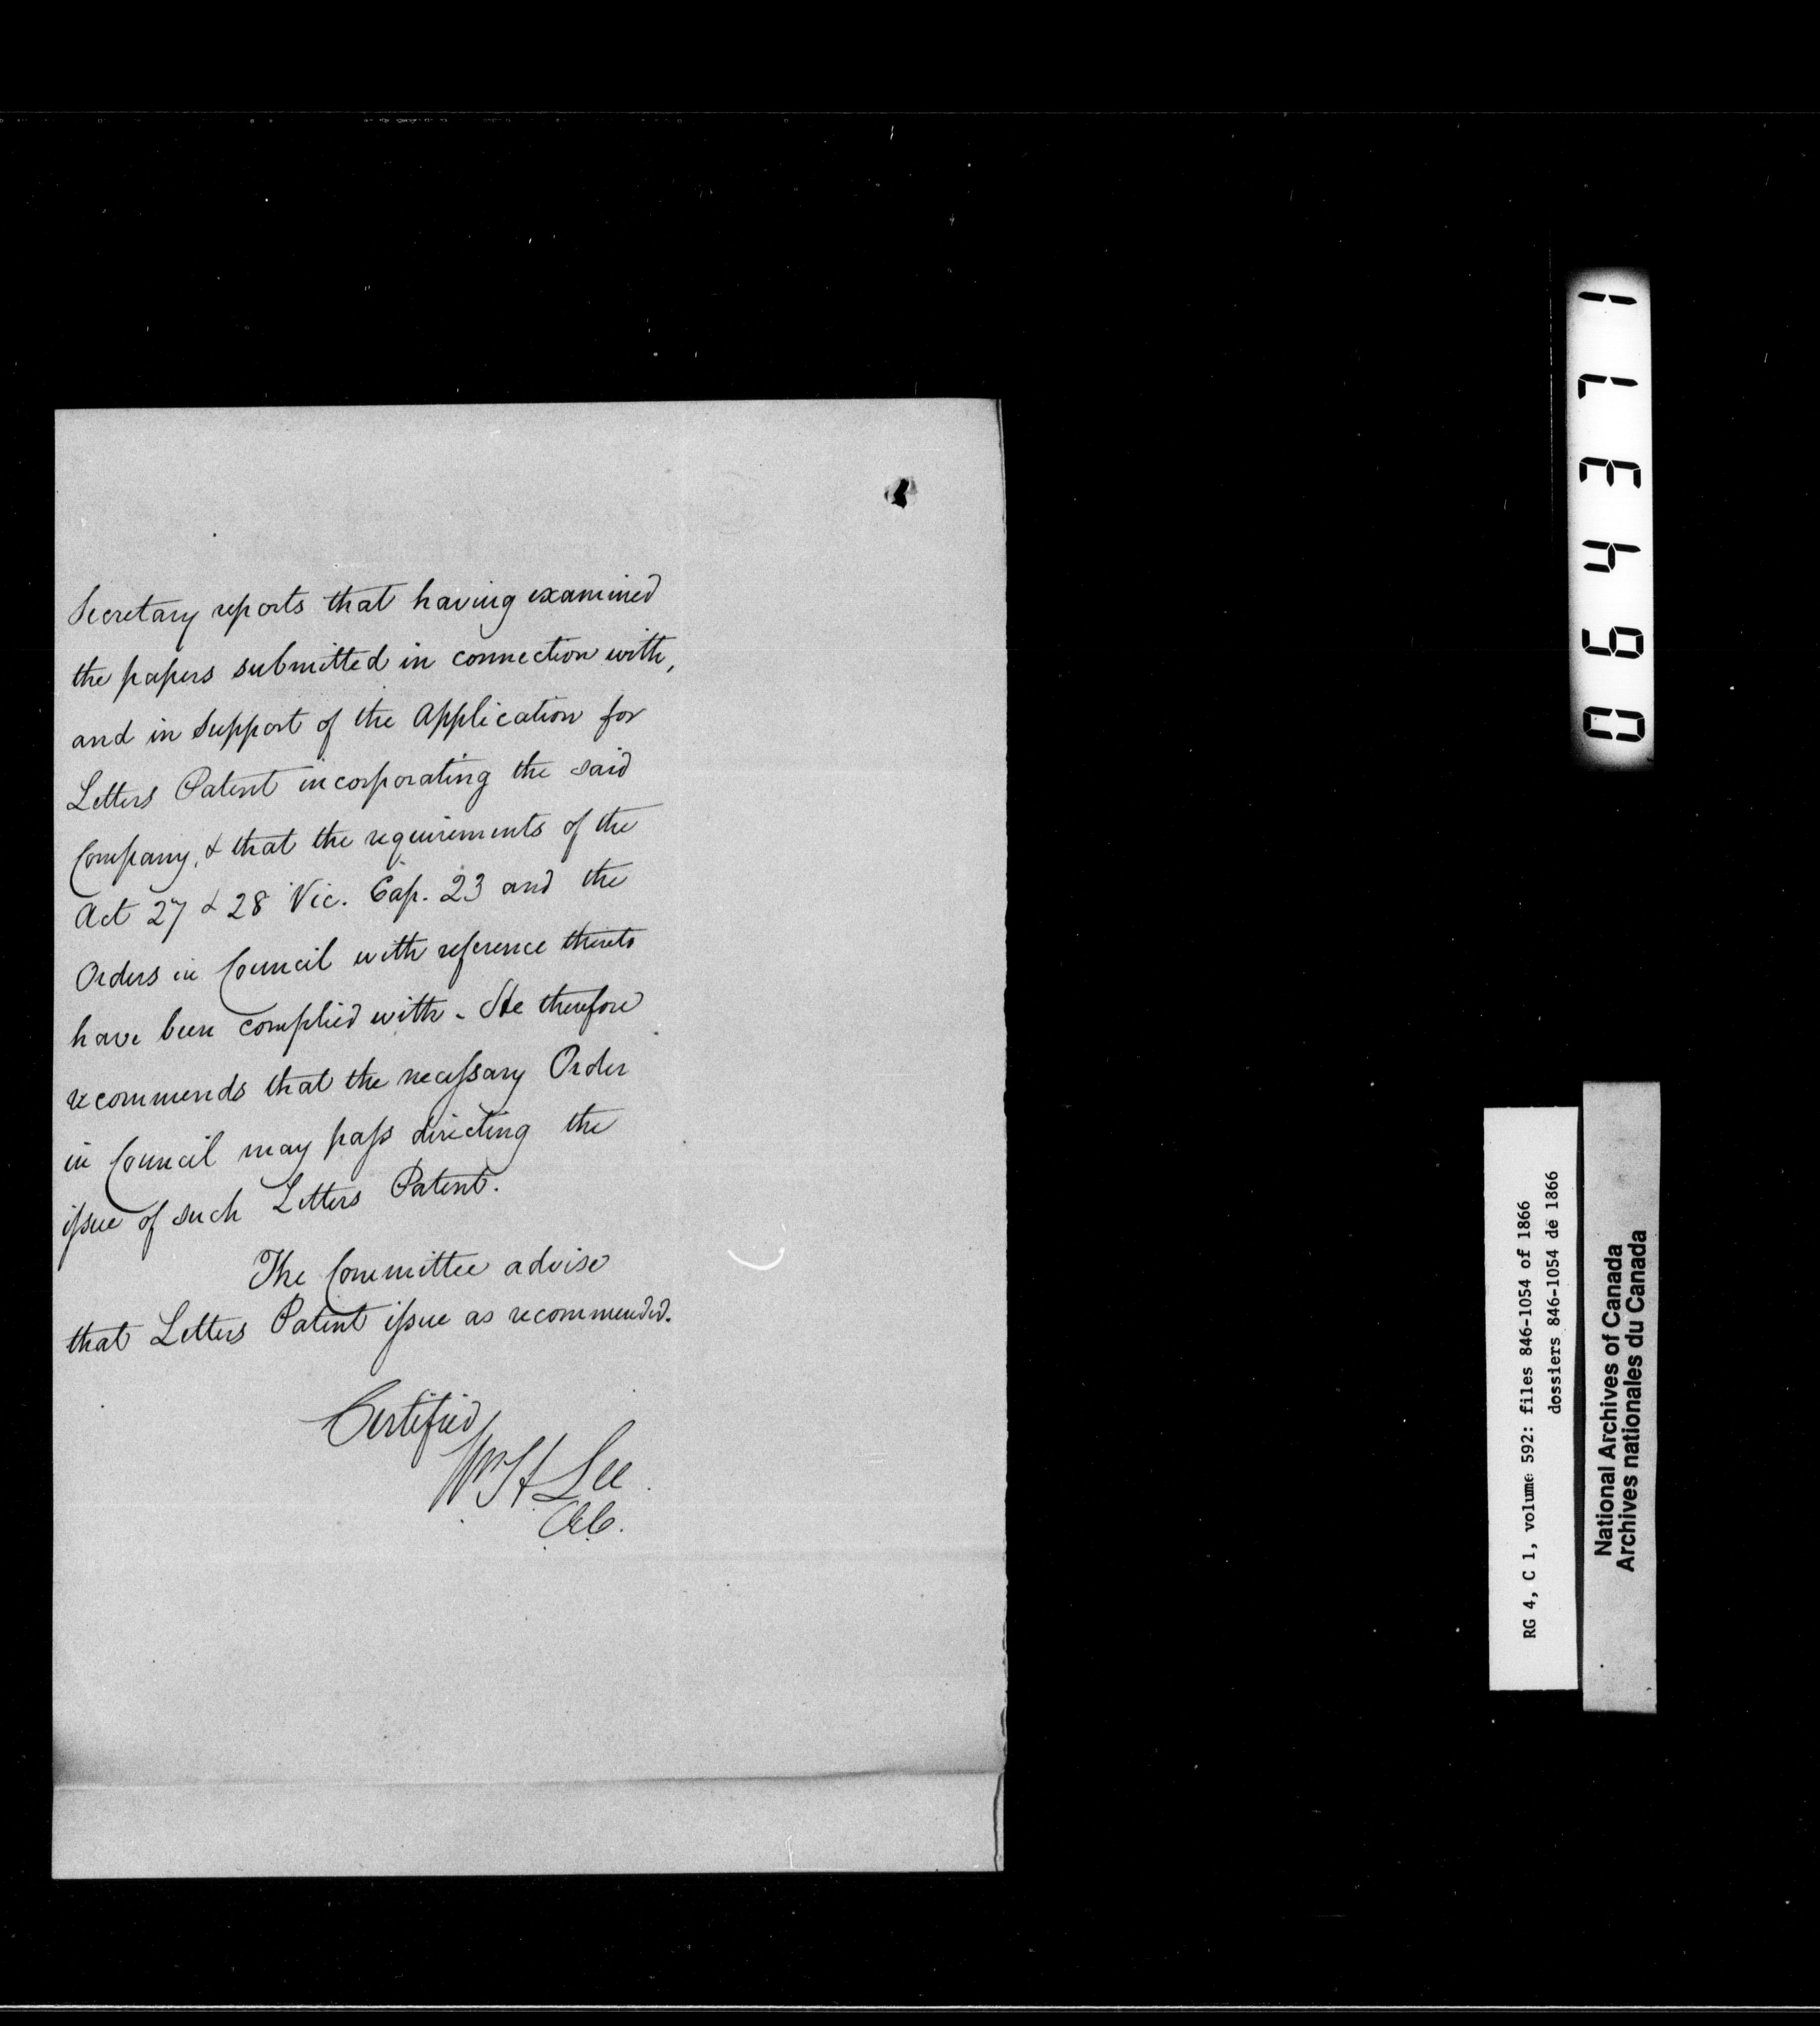 Secretary reports that having examined
the papers submitted in connection with,
and in support of the Application for
Letters Patent incorporating the said
Company, & that the requirements of the
Act 27 & 28 Vic. Cap. 23 and the
Orders in Council with reference thereto
have been complied with. He therefore
recommends that the necessary Order
in Council may pass directing the
issue of such Letters Patent.
The Committee advise
that Letters Patent issue as recommended.
Certified
Wm H Lee
C.E.C.
064371
RG 4, C 1, volume 592: files 846-1054 of 1866
dossiers 846-1054 de 1866
National Archives of Canada
Archives nationales du Canada